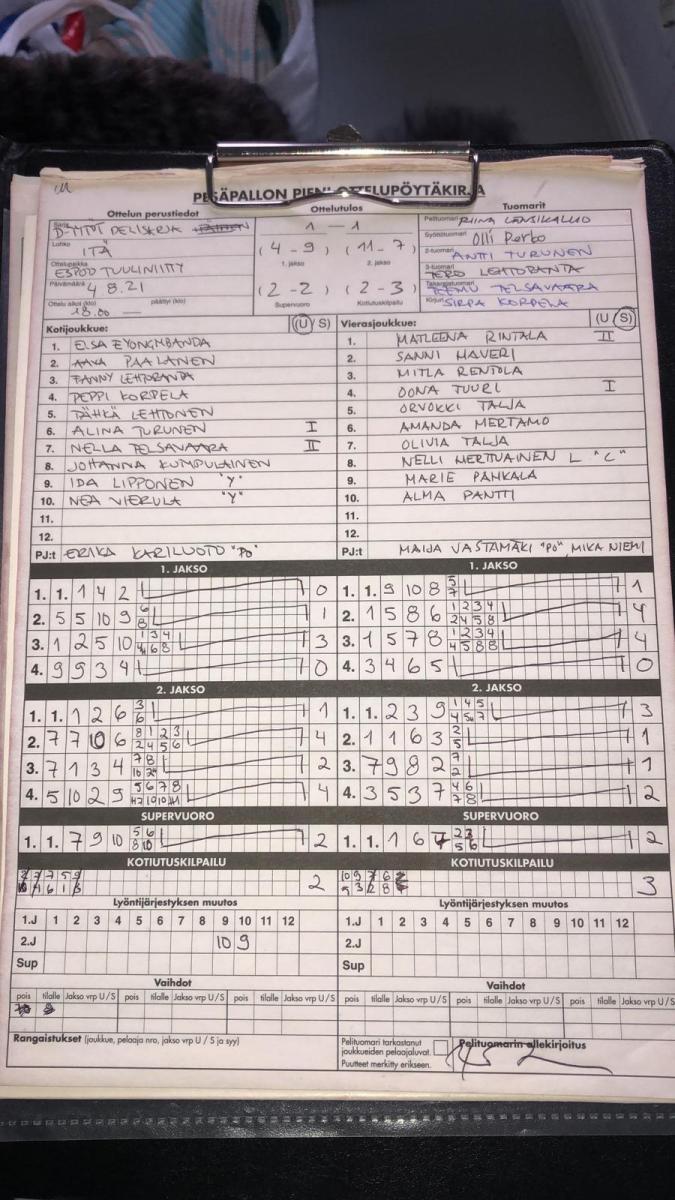 PESÄPALLON PIENI OTTELUPÖYTÄKIRJA
Ottelun perustiedot
Ottelutulos
Tuomarit
Sarja D-TYTÖT
Lohko ITÄ
Ottelupaikka ESPOO TUULINIITTY
Päivämäärä 4 8.21
Ottelu alkoi (klo) 18.00 päättyi (klo)
1 — 1
( 4 - 9 ) ( 11 - 7 )
1. jakso 2. jakso
( 2 - 2 ) ( 2 - 3 )
Supervuoro Kotiutuskilpailu
Pelituomari RIINA LÄNSIKALLIO
Syöttötuomari Olli Perko
2-tuomari ANTTI TURUNEN
3-tuomari TERO LEHTORANTA
Takarajatuomari TEEMU TELSAVAARA
Kirjuri SIRPA KORPELA
Kotijoukkue: (U/S)
1. ELSA EYONGMBANDA
2. AAVA PAALANEN
3. FANNY LEHTORANTA
4. PEPPI KORPELA
5. TÄHKÄ LEHTONEN
6. ALINA TURUNEN I
7. NELLA TELSAVAARA II
8. JOHANNA KUMPULAINEN
9. IDA LIPPONEN "Y"
10. NEA VIERULA "Y"
11.
12.
PJ:t ERIKA KARILUOTO "PO"
Vierasjoukkue: (U/S)
1. MATLEENA RINTALA II
2. SANNI HAVERI
3. MITLA RENTOLA
4. OONA TUURI I
5. ORVOKKI TALJA
6. AMANDA MERTAMO
7. OLIVIA TALJA
8. NELLI HERTTUAINEN L "C"
9. MARIE PAHKALA
10. ALMA PANTTI
11.
12.
PJ:t MAIJA VASTAMÄKI "PO", MIKA NIEMI
1. JAKSO
1. 1. 1 4 2 0
2. 5 5 10 9 6 8 1
3. 1 2 5 10 3
4. 9 9 3 4 0
1. JAKSO
1. 1. 9 10 8 5 7 1
2. 1 5 8 6 1 2 3 4 2 4 5 8 4
3. 1 5 7 8 1 2 3 4 4 5 8 8 4
4. 3 4 6 5 0
2. JAKSO
1. 1. 1 2 6 3 6 1
2. 7 7 10 6 8 1 2 3 2 4 5 6 4
3. 7 1 3 4 2
4. 5 10 2 9 5 6 7 8 4
2. JAKSO
1. 1. 2 3 9 3
2. 1 1 6 3 2 5 1
3. 7 9 8 2 7 2 1
4. 3 5 3 7 4 6 7 8 2
SUPERVUORO
1. 1. 7 9 10 5 6 8 10 2
SUPERVUORO
1. 1. 1 6 2 3 5 6 2
KOTIUTUSKILPAILU
2
KOTIUTUSKILPAILU
3
Lyöntijärjestyksen muutos
1.J 1 2 3 4 5 6 7 8 9 10 11 12
2.J 10 9
Sup
Lyöntijärjestyksen muutos
1.J 1 2 3 4 5 6 7 8 9 10 11 12
2.J
Sup
Vaihdot
pois tilalle Jakso vrp U/S pois tilalle Jakso vrp U/S pois tilalle Jakso vrp U/S
Vaihdot
pois tilalle Jakso vrp U/S pois tilalle Jakso vrp U/S pois tilalle Jakso vrp U/S
Rangaistukset (joukkue, pelaaja nro, jakso vrp U / S ja syy)
Pelituomari tarkastanut
joukkueiden pelaajaluvat.
Puutteet merkitty erikseen.
Pelituomarin allekirjoitus